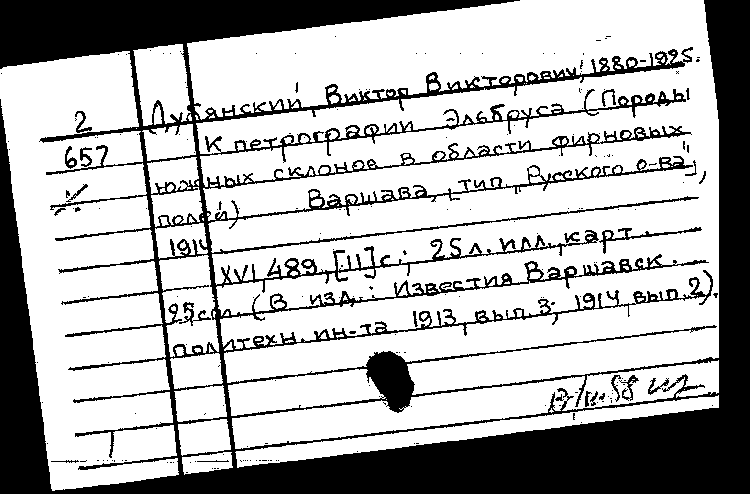 2 Дубянский, Виктор Викторович, 1880-1925.
657 К петрографии Эльбруса (Породы
южных склонов в области фирновых
полей). Варшава, тип. „Русского о-ва",
1914.
XVI, 489, [11] с.; 25 л. илл., карт.
25 см. (В изд.: Известия Варшавск.
политехн. ин-та. 1913, вып. 3; 1914, вып. 2).